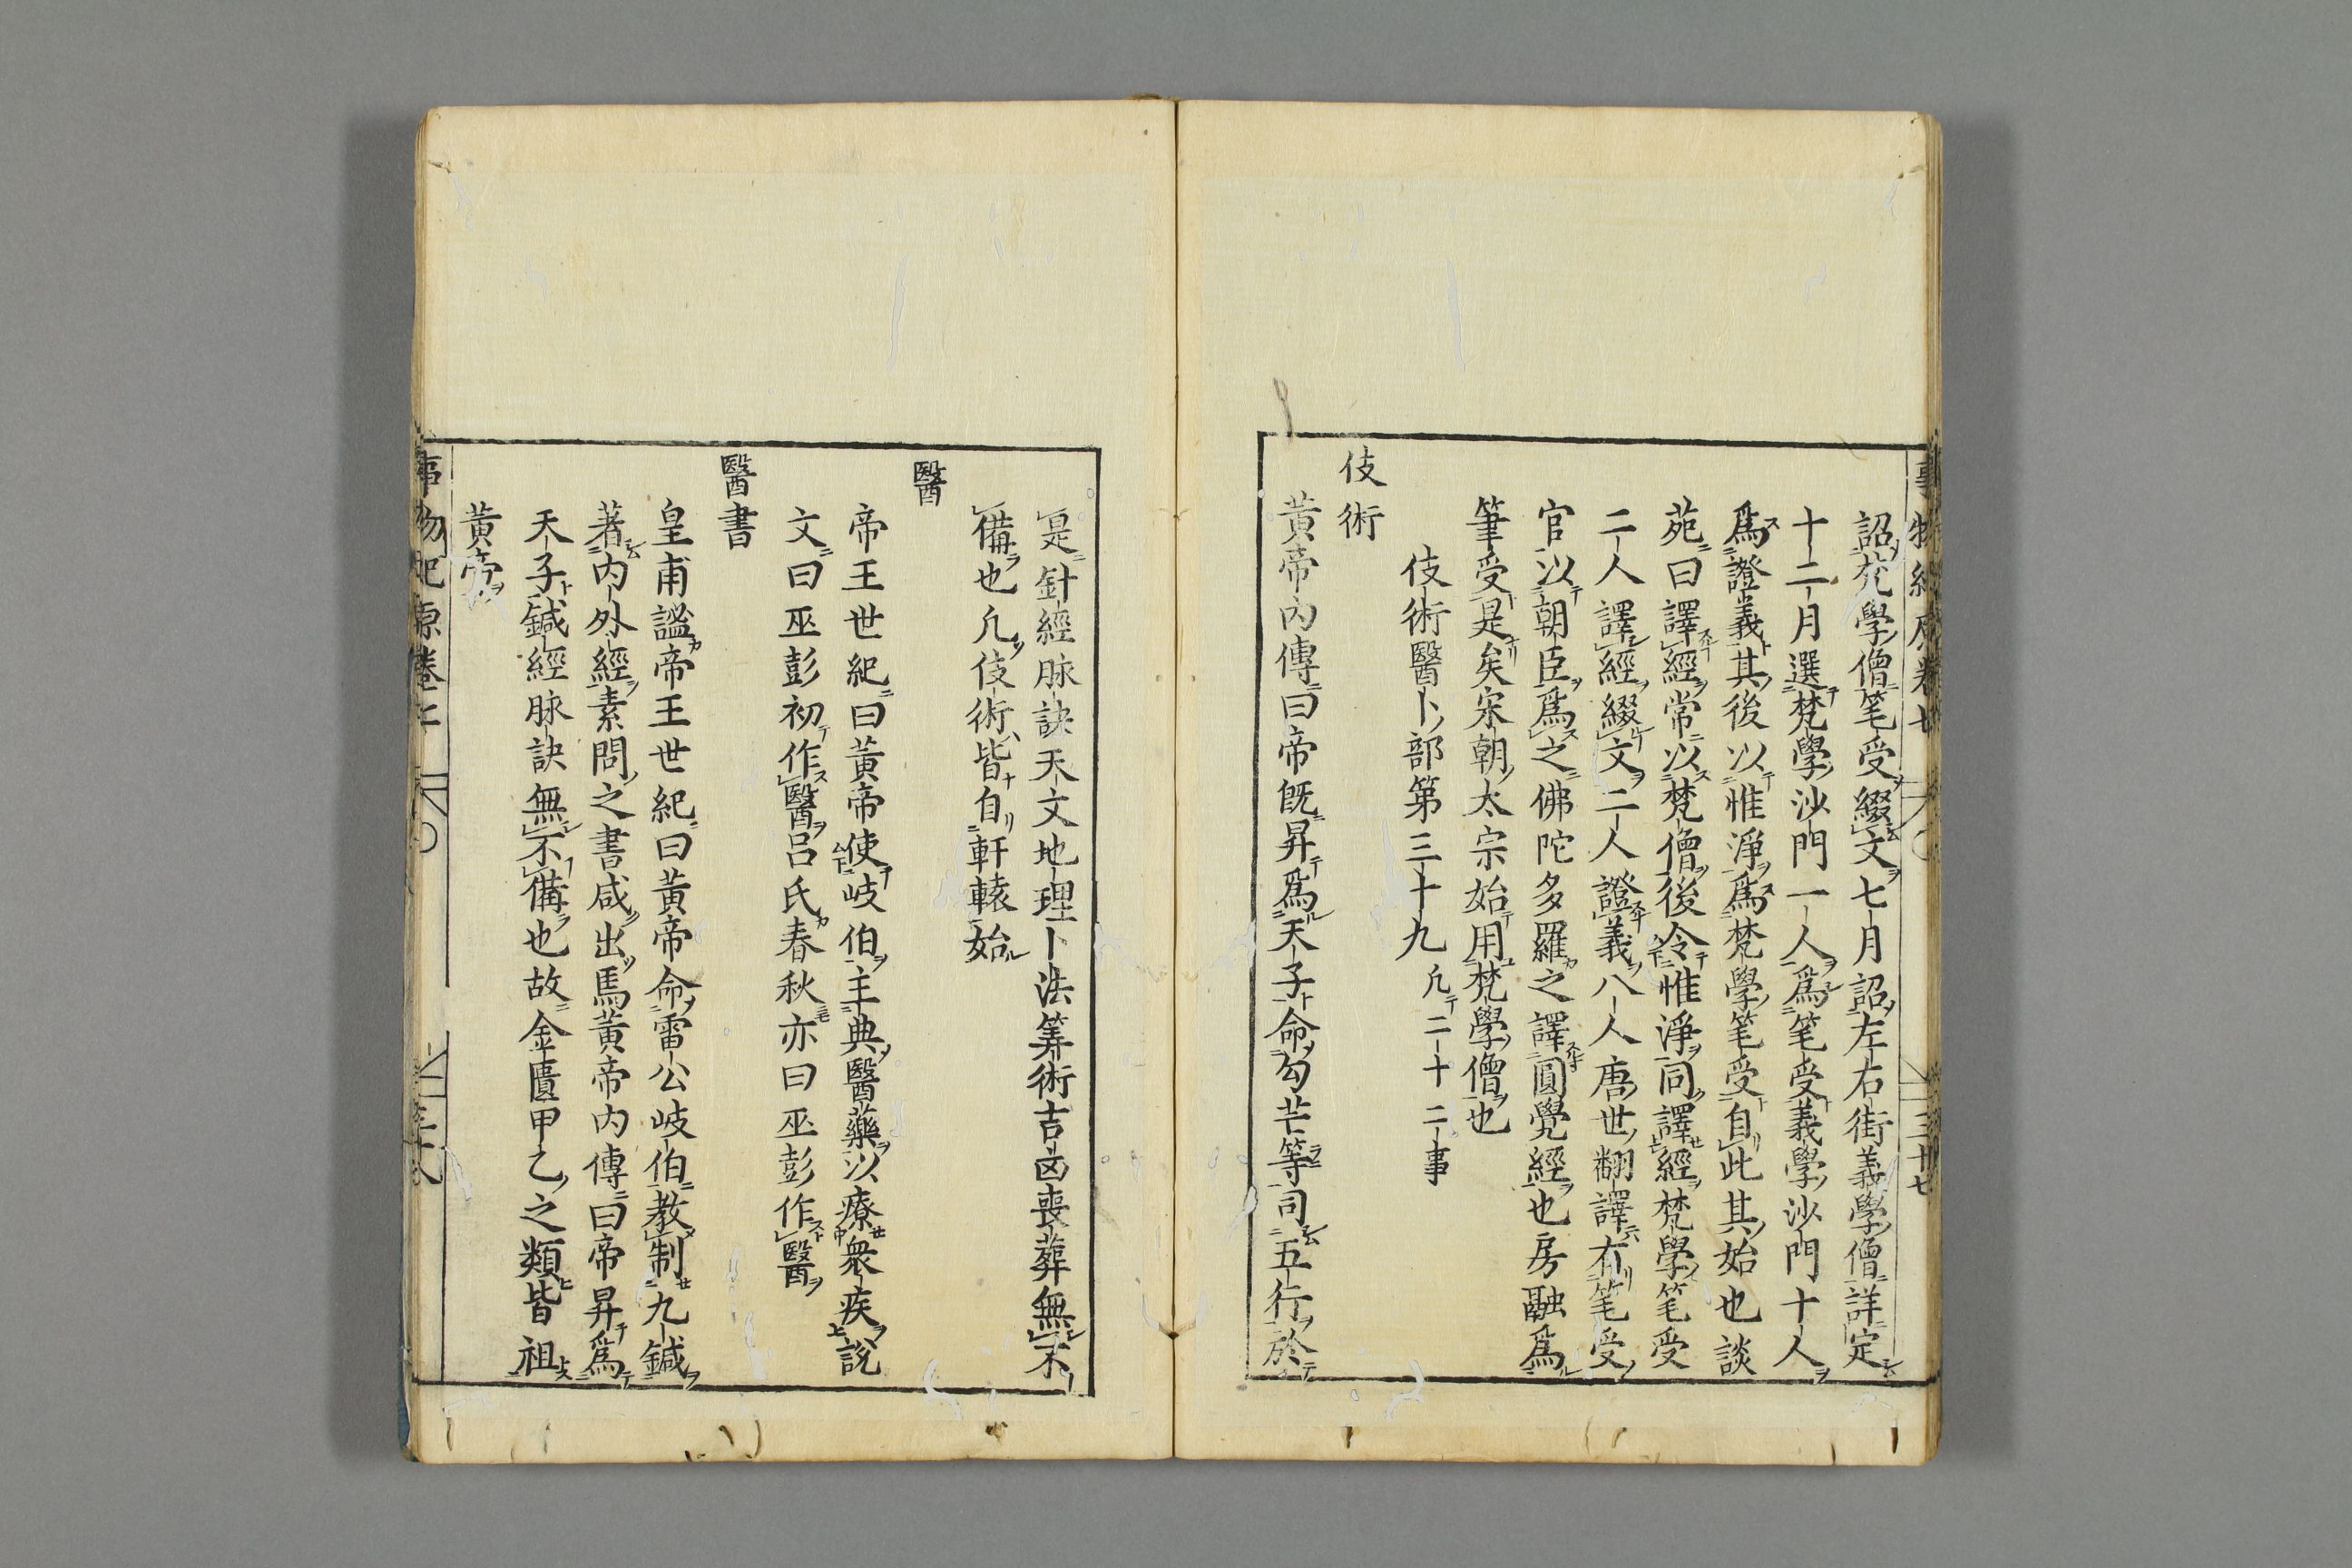 事物紀原卷七 三十七
詔梵學僧筆受綴文七月詔左右街義學僧詳定
十二月選梵學沙門一人爲筆受義學沙門十人
爲證義其後以惟淨爲梵學筆受自此其始也談
苑曰譯經常以梵僧後令惟淨同譯經梵學筆受
二人譯經綴文二人證義八人唐世翻譯有筆受
官以朝臣爲之佛陀多羅之譯圓覺經也房融爲
筆受是矣宋朝太宗始用梵學僧也
伎術醫卜部第三十九 凢二十二事
伎術
黃帝內傳曰帝既昇爲天子命勾芒等司五行於
是針經脉訣天文地理卜法筭術吉凶喪葬無不
備也凢伎術皆自軒轅始
醫
帝王世紀曰黃帝使岐伯主典醫藥以療衆疾說
文曰巫彭初作醫呂氏春秋亦曰巫彭作醫
醫書
皇甫謐帝王世紀曰黃帝命雷公岐伯教制九鍼
著內外經素問之書咸出焉黃帝内傳曰帝昇爲
天子鍼經脉訣無不備也故金匱甲乙之類皆祖
黃帝
事物紀原卷七 三十八